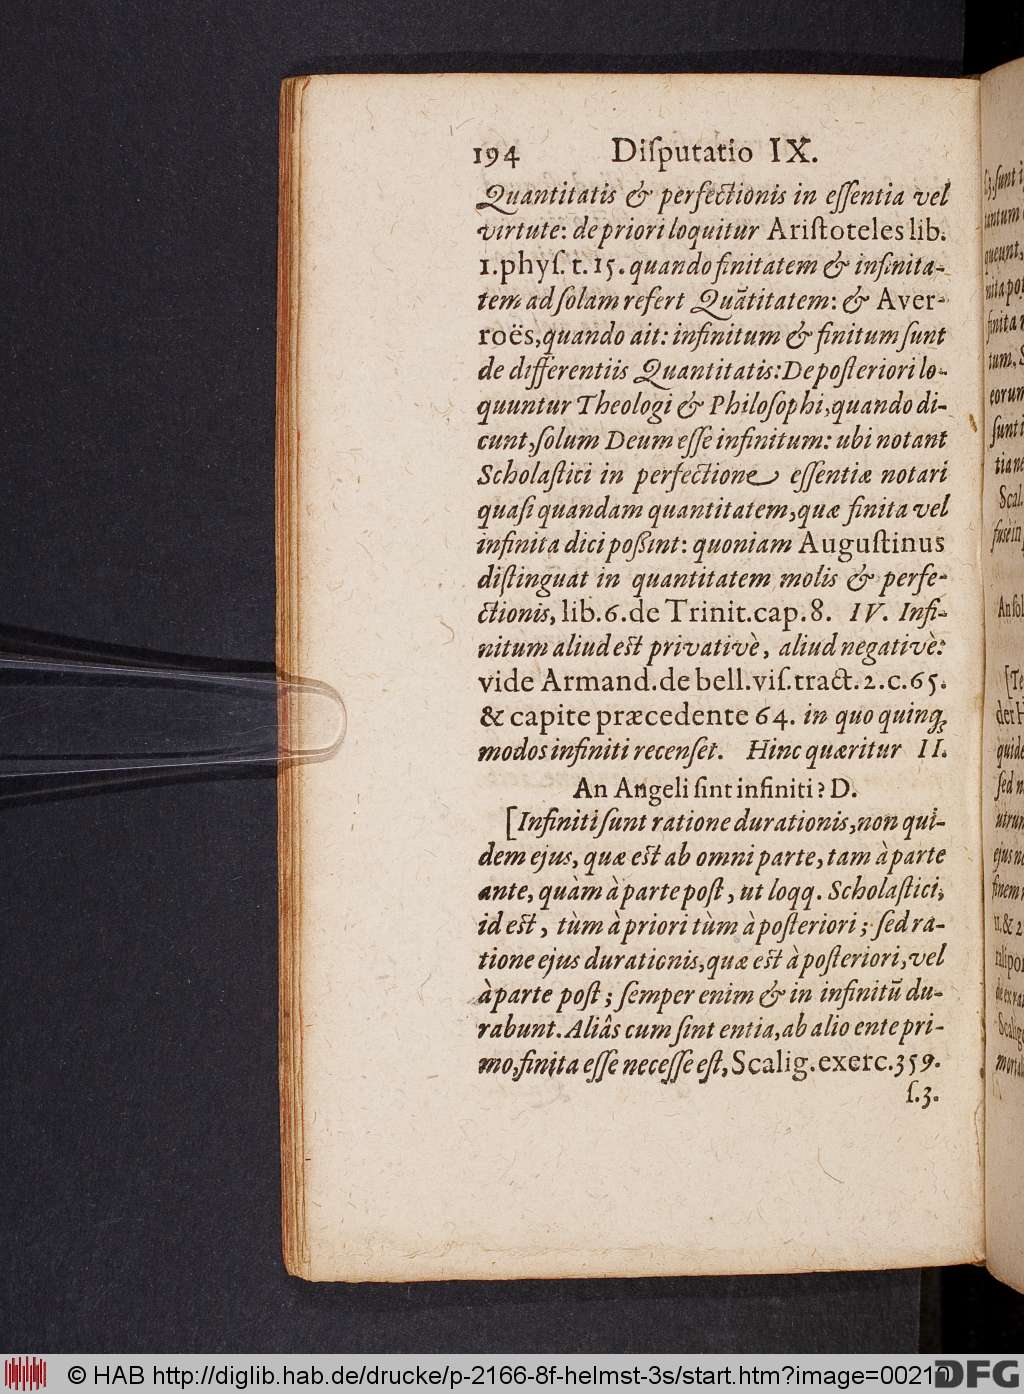 194 Diſputatio IX.
Quantitatis & perfectionis in eſſentia vel
virtute: de priori loquitur Ariſtoteles lib.
1.phyſ. t. 15. quando finitatem & infinita-
tem ad ſolam refert Quãtitatem: & Aver-
roës, quando ait: infinitum & finitum ſunt
de differentiis Quantitatis: De poſteriori lo-
quuntur Theologi & Philoſophi, quando di-
cunt, ſolum Deum eſſe infinitum: ubi notant
Scholaſtici in perfectione eſſentiæ notari
quaſi quandam quantitatem, quæ finita vel
infinita dici poßint: quoniam Auguſtinus
diſtinguat in quantitatem molis & perfe-
ctionis, lib. 6. de Trinit. cap. 8. IV. Infi-
nitum aliud est privativè, aliud negativè:
vide Armand. de bell. viſ. tract. 2. c. 65.
& capite præcedente 64. in quo quinq;
modos infiniti recenſet. Hinc quæritur II.
An Angeli ſint infiniti? D.
[Infiniti ſunt ratione durationis, non qui-
dem ejus, quæ est ab omni parte, tam à parte
ante, quàm à parte poſt, ut loqq. Scholaſtici,
id est, tùm à priori tùm à poſteriori; ſed ra-
tione ejus durationis, quæ est à poſteriori, vel
à parte poſt; ſemper enim & in infinitū du-
rabunt. Aliâs cum ſint entia, ab alio ente pri-
mo, finita eſſe neceſſe eſt, Scalig. exerc. 359.
ſ. 3.
© HAB http://diglib.hab.de/drucke/p-2166-8f-helmst-3s/start.htm?image=00210
DFG